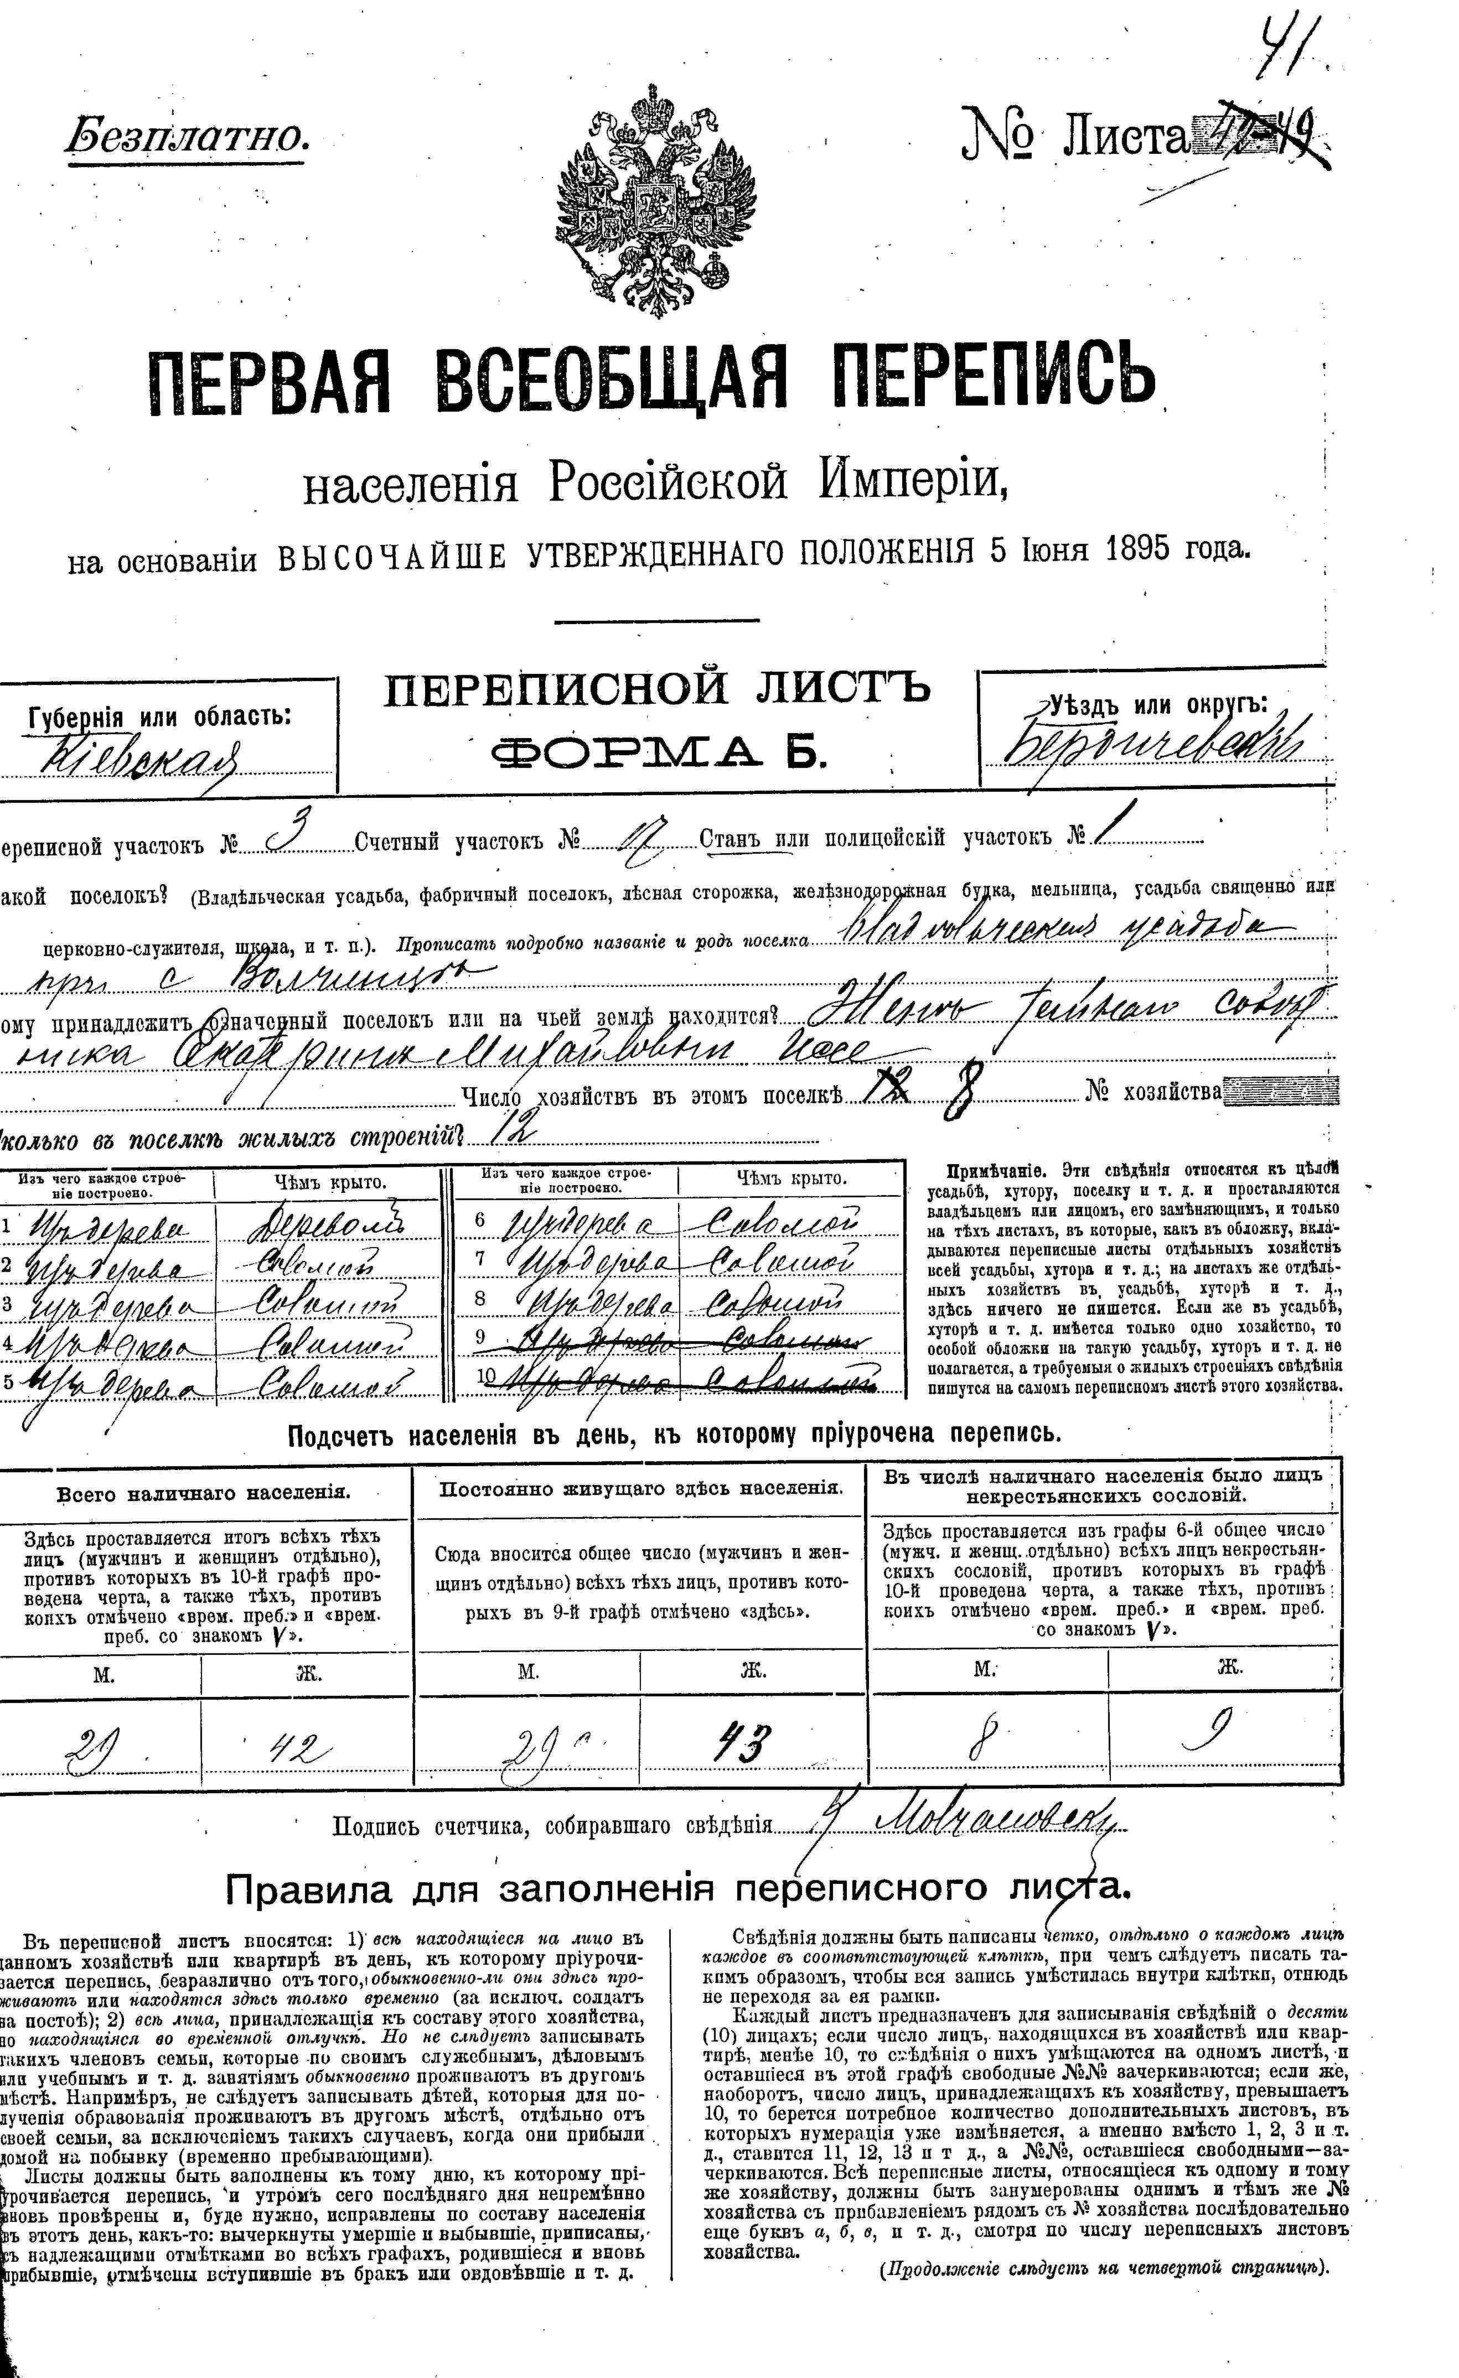 41.
Безплатно.
№ Листа 49
ПЕРВАЯ ВСЕОБЩАЯ ПЕРЕПИСЬ
населенія Россійской Имперіи,
на основаніи ВЫСОЧАЙШЕ УТВЕРЖДЕННАГО ПОЛОЖЕНІЯ 5 Іюня 1895 года.
ПЕРЕПИСНОЙ ЛИСТЪ
ФОРМА Б.
Губернія или область:
Кіевская
Уѣздъ или округъ:
Бердичевскій
ереписной участокъ № 3 Счетный участокъ № 17 Станъ или полицейскій участокъ № 1
акой поселокъ? (Владѣльческая усадьба, фабричный поселокъ, лѣсная сторожка, желѣзнодорожная будка, мельница, усадьба священно или
церковно-служителя, школа, и т. п.). Прописать подробно названіе и родъ поселка Владѣльческая усадьба
при с Волчинцъ
ому принадлежитъ означенный поселокъ или на чьей землѣ находится? Женѣ
Екатеринѣ Михайловнѣ
Число хозяйствъ въ этомъ поселкѣ 12 8 № хозяйства
колько въ поселкѣ жилыхъ строеній? 12
Изъ чего каждое строе-
ніе построено. Чѣмъ крыто. Изъ чего каждое строе-
ніе построено. Чѣмъ крыто.
1 Изъ дерева Деревомъ 6 Изъ дерева Соломой
2 Изъ дерева Соломой 7 Изъ дерева Соломой
3 Изъ дерева Соломой 8 Изъ дерева Соломой
4 Изъ дерева Соломой 9 Изъ дерева Соломой
5 Изъ дерева Соломой 10 Изъ дерева Соломой
Примѣчаніе. Эти свѣдѣнія относятся къ цѣлой
усадьбѣ, хутору, поселку и т. д. и проставляются
владѣльцемъ или лицомъ, его замѣняющимъ, и только
на тѣхъ листахъ, въ которые, какъ въ обложку, вкла-
дываются переписные листы отдѣльныхъ хозяйствъ
всей усадьбы, хутора и т. д.; на листахъ же отдѣль-
ныхъ хозяйствъ въ усадьбѣ, хуторѣ и т. д.,
здѣсь ничего не пишется. Если же въ усадьбѣ,
хуторѣ и т. д. имѣется только одно хозяйство, то
особой обложки на такую усадьбу, хуторъ и т. д. не
полагается, а требуемыя о жилыхъ строеніяхъ свѣдѣнія
пишутся на самомъ переписномъ листѣ этого хозяйства.
Подсчетъ населенія въ день, къ которому пріурочена перепись.
Всего наличнаго населенія.
Здѣсь проставляется итогъ всѣхъ тѣхъ
лицъ (мужчинъ и женщинъ отдѣльно),
противъ которыхъ въ 10-й графѣ про-
ведена черта, а также тѣхъ, противъ
коихъ отмѣчено «врем. преб.» и «врем.
преб. со знакомъ V».
Постоянно живущаго здѣсь населенія.
Сюда вносится общее число (мужчинъ и жен-
щинъ отдѣльно) всѣхъ тѣхъ лицъ, противъ кото-
рыхъ въ 9-й графѣ отмѣчено «здѣсь».
Въ числѣ наличнаго населенія было лицъ
некрестьянскихъ сословій.
Здѣсь проставляется изъ графы 6-й общее число
(мужч. и женщ. отдѣльно) всѣхъ лицъ некрестьян-
скихъ сословій, противъ которыхъ въ графѣ
10-й проведена черта, а также тѣхъ, противъ
коихъ отмѣчено «врем. преб.» и «врем. преб.
со знакомъ V».
М. Ж. М. Ж. М. Ж.
29 42 29 43 8 9
Подпись счетчика, собиравшаго свѣдѣнія
Правила для заполненія переписного листа.
Въ переписной листъ вносятся: 1) всѣ находящіеся на лицо въ
данномъ хозяйствѣ или квартирѣ въ день, къ которому пріурочи-
вается перепись, безразлично отъ того, обыкновенно-ли они здѣсь про-
живаютъ или находятся здѣсь только временно (за исключ. солдатъ
на постоѣ); 2) всѣ лица, принадлежащія къ составу этого хозяйства,
но находящіяся во временной отлучкѣ. Но не слѣдуетъ записывать
такихъ членовъ семьи, которые по своимъ служебнымъ, дѣловымъ
или учебнымъ и т. д. занятіямъ обыкновенно проживаютъ въ другомъ
мѣстѣ. Напримѣръ, не слѣдуетъ записывать дѣтей, которыя для по-
лученія образованія проживаютъ въ другомъ мѣстѣ, отдѣльно отъ
своей семьи, за исключеніемъ такихъ случаевъ, когда они прибыли
домой на побывку (временно пребывающими).
Листы должны быть заполнены къ тому дню, къ которому прі-
урочивается перепись, и утромъ сего послѣдняго дня непремѣнно
вновь провѣрены и, буде нужно, исправлены по составу населенія
въ этотъ день, какъ-то: вычеркнуты умершіе и выбывшіе, приписаны,
съ надлежащими отмѣтками во всѣхъ графахъ, родившіеся и вновь
прибывшіе, отмѣчены вступившіе въ бракъ или овдовѣвшіе и т. д.
Свѣдѣнія должны быть написаны четко, отдѣльно о каждомъ лицѣ
каждое въ соотвѣтствующей клѣткѣ, при чемъ слѣдуетъ писать та-
кимъ образомъ, чтобы вся запись умѣстилась внутри клѣтки, отнюдь
не переходя за ея рамки.
Каждый листъ предназначенъ для записыванія свѣдѣній о десяти
(10) лицахъ; если число лицъ, находящихся въ хозяйствѣ или квар-
тирѣ, менѣе 10, то свѣдѣнія о нихъ умѣщаются на одномъ листѣ, и
оставшіеся въ этой графѣ свободные №№ зачеркиваются; если же,
наоборотъ, число лицъ, принадлежащихъ къ хозяйству, превышаетъ
10, то берется потребное количество дополнительныхъ листовъ, въ
которыхъ нумерація уже измѣняется, а именно вмѣсто 1, 2, 3 и т.
д., ставится 11, 12, 13 и т д., а №№, оставшіеся свободными—за-
черкиваются. Всѣ переписные листы, относящіеся къ одному и тому
же хозяйству, должны быть занумерованы однимъ и тѣмъ же №
хозяйства съ прибавленіемъ рядомъ съ № хозяйства послѣдовательно
еще буквъ а, б, в, и т. д., смотря по числу переписныхъ листовъ
хозяйства.
(Продолженіе слѣдуетъ на четвертой страницѣ).